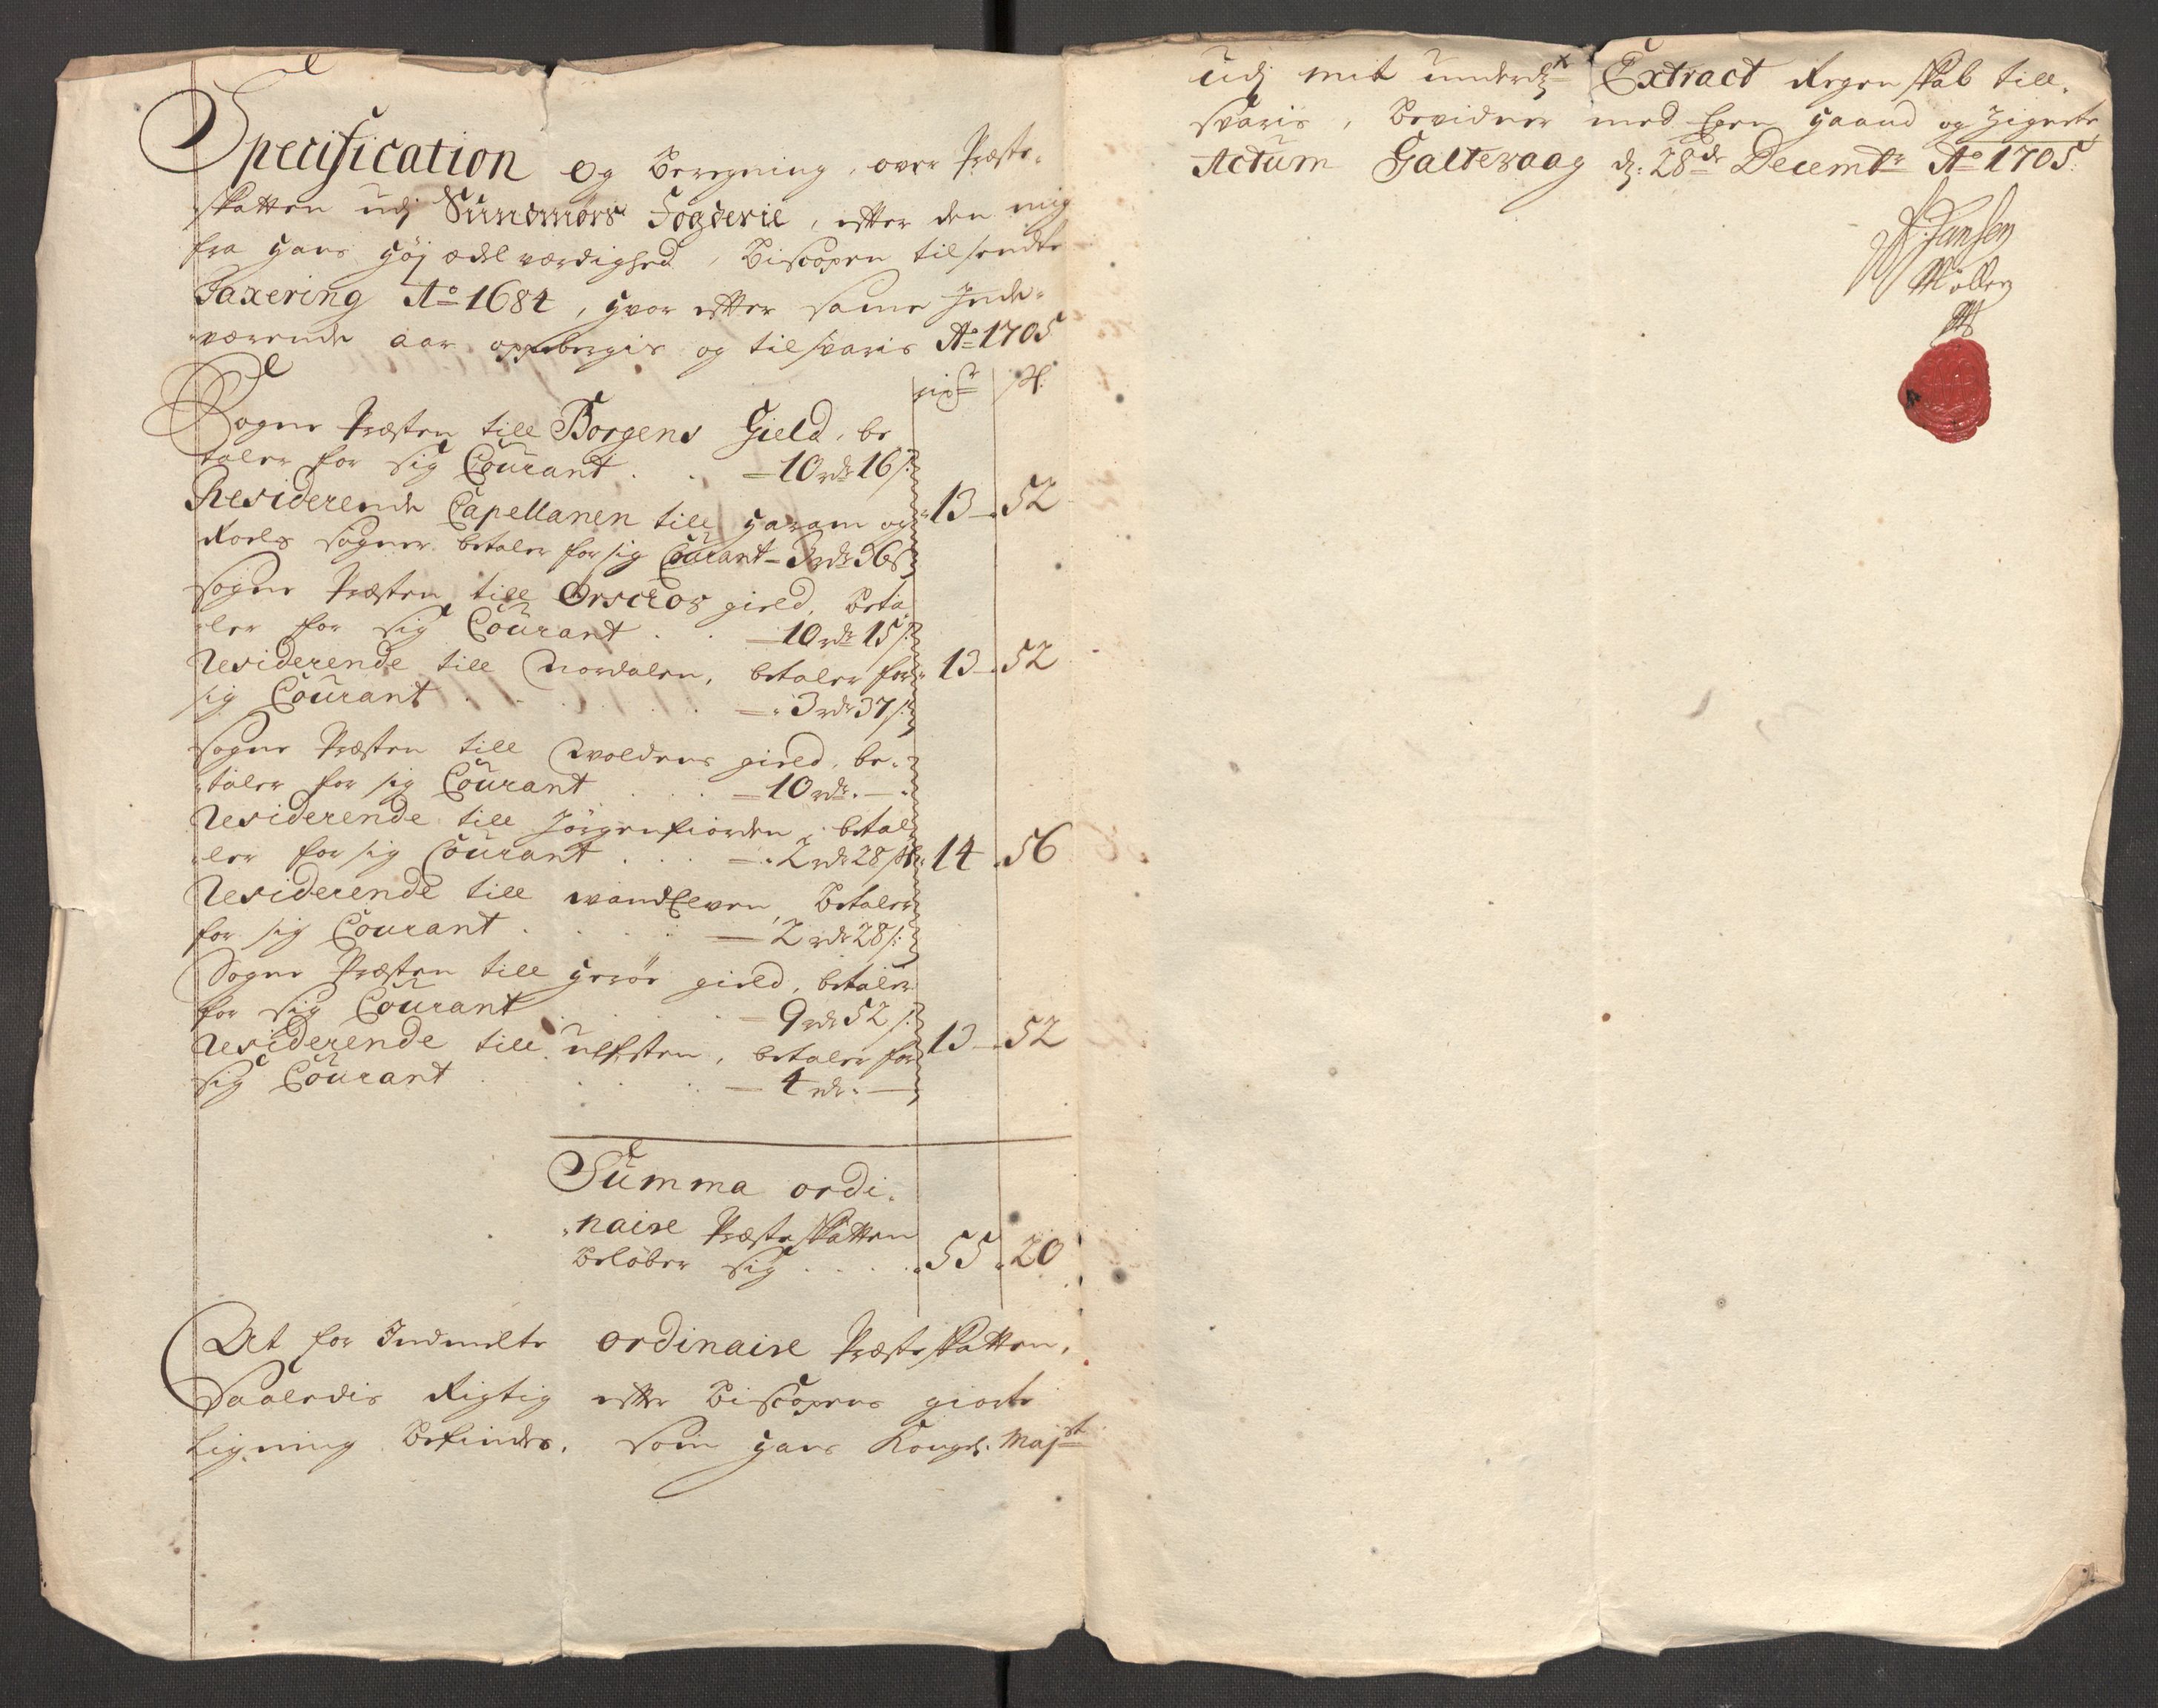 Specification og Beregning, over Præste-
skatten udj Sundmørs Fogderie, efter den mig
fra hans høj ædelværdighed, Biscopen tilsendte
Taxering Ao 1684, hvor efter samme Inde-
værende aar oppebergis og tilsvaris Ao 1705
rixdr sk.
Sogne Præsten till Borgens Gield, be
taler for sig Courant . . — 10 rdr 16 s:
Residerende Capellanen till haram og 13 - 52
Roels sogner betaler for sig Courant - 3 rdr 36 s
Sogne Præsten till Orschog gield, beta
ler for sig Courant . . — 10 rdr 15 s:
Residerende till Nordalen, betaler for 13 - 52
sig Courant . . . . . — 3 rdr 37 s:
Sogne Præsten till Woldens gield, be-
taler for sig Courant . . . — 10 rdr. —
Residerende till Jörgenfiorden, beta-
ler for sig Courant . . . — 2 rdr 28 sk 14 . 56
Residerende till wandElven, betaler
for sig Courant . . . . — 2 rdr 28 s:
Sogne Præsten till Herøe gield, betaler
for sig Courant . . . . — 9 rdr 52 s:
Residerende till Ulfsten, betaler for 13 - 52
sig Courant . . . . — 4 rdr. —
Summa ordi-
naire Præsteskatten
Beløber sig . . . . 55 . 20
At for Indmelte ordinaire Præsteskatten,
Saaledis Rigtig efter Biscopens giorte
Ligning Befindes, som hans Kongl. Majst
udj mit underdx Extract Regenskab till-
svaris, Bevidner med Egen haand og Zignete
Actum Galtevaag d: 28de Decembr Ao 1705
Jansen
Möller